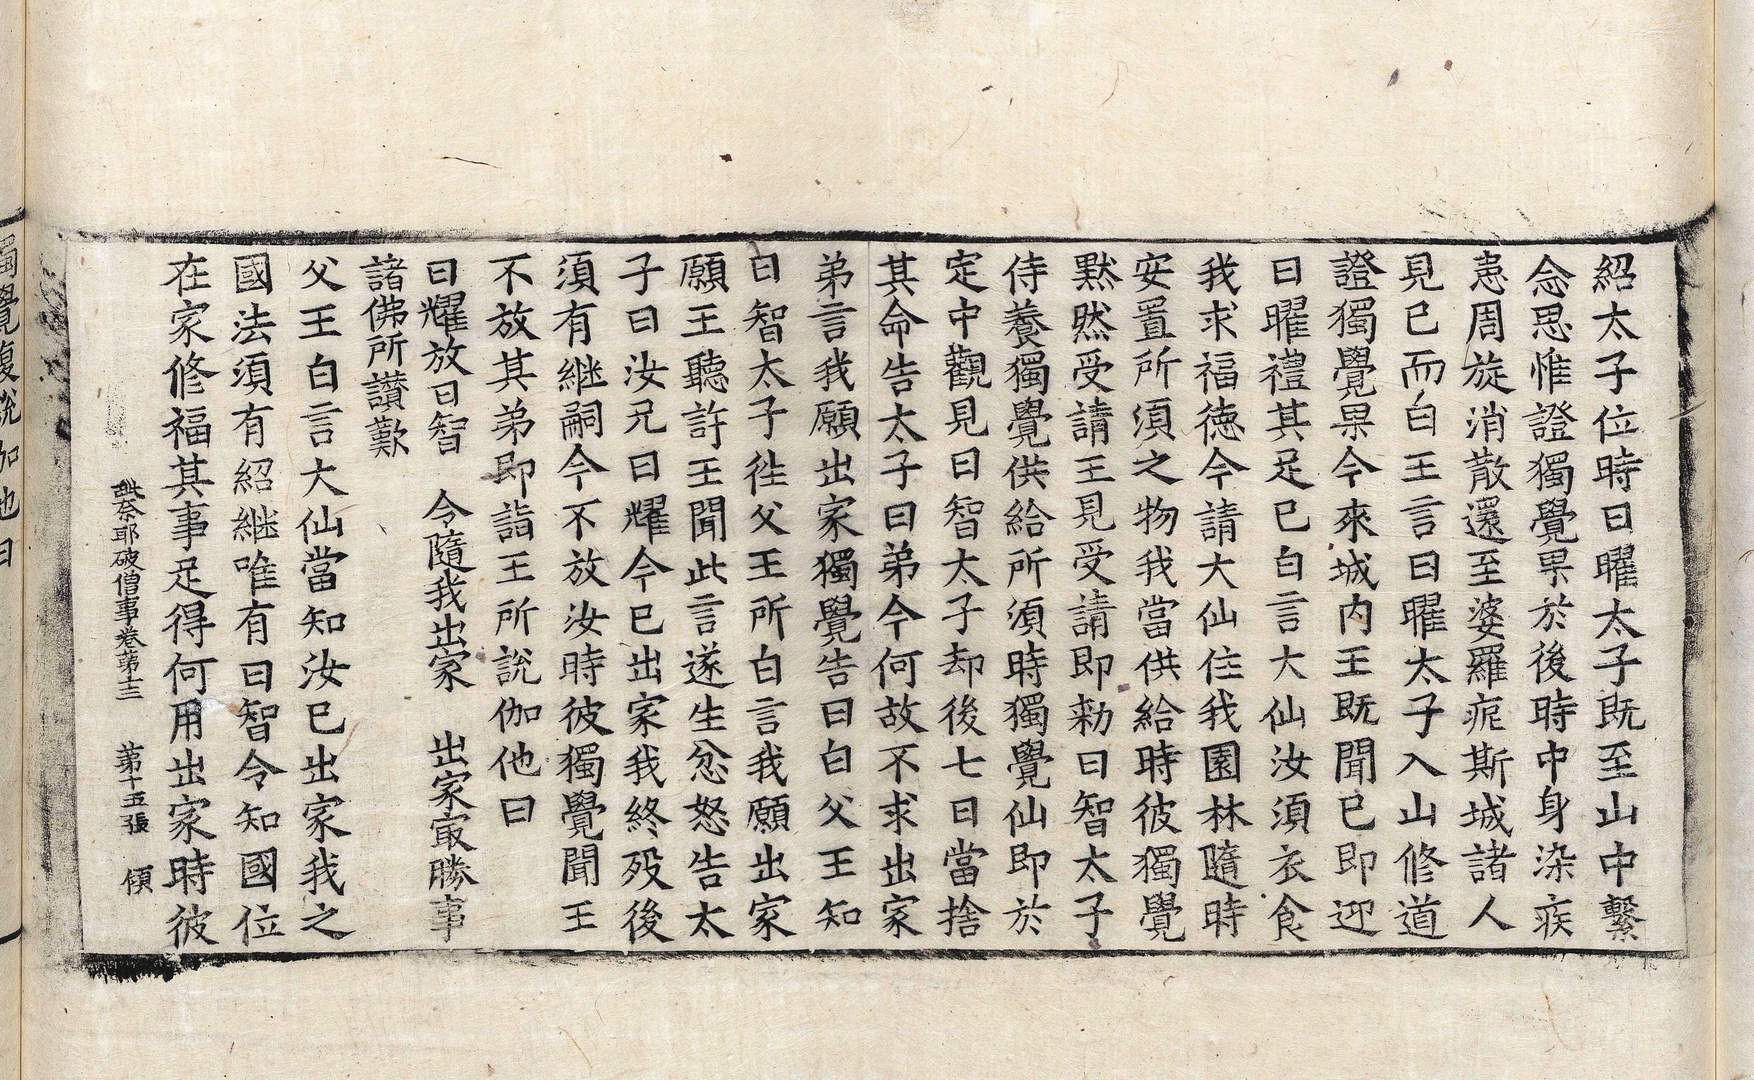 紹太子位時日曜太子既至山中繫
念思惟證獨覺果於後時中身染疾
恚周旋消散還至婆羅痆斯城諸人
見已而白王言日曜太子入山修道
證獨覺果今來城內王既聞已即迎
日曜禮其足已白言大仙汝須衣食
我求福德今請大仙住我園林隨時
安置所須之物我當供給時彼獨覺
默然受請王見受請即勑日智太子
侍養獨覺供給所須時獨覺仙即於
定中觀見日智太子却後七日當捨
其命告太子曰弟今何故不求出家
弟言我願出家獨覺告曰白父王知
日智太子往父王所白言我願出家
願王聽許王聞此言遂生忿怒告太
子曰汝兄日耀今已出家我終歿後
須有継嗣今不放汝時彼獨覺聞王
不放其弟即詣王所說伽他曰
日耀放日智　令隨我出家　出家冣勝事
諸佛所讃歎
父王白言大仙當知汝已出家我之
國法須有紹継唯有日智令知國位
在家修福其事足得何用出家時彼
奈耶破僧事卷第十三　第十五張　傾
獨覺復說伽他曰